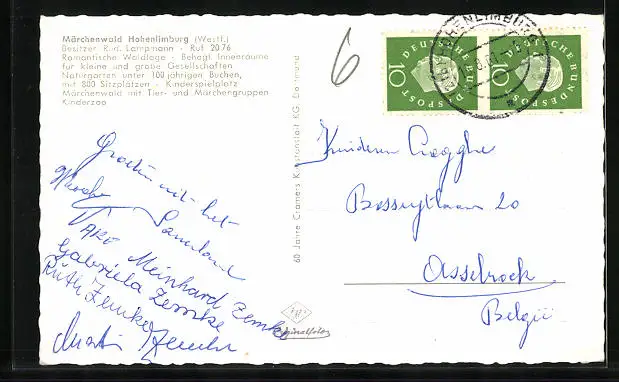 Märchenwald Hohenlimburg (Westf.)
Besitzer Rud. Lampmann · Ruf 2076
Romantische Waldlage · Behagl. Innenräume
für kleine und große Gesellschaften
Naturgarten unter 100 jährigen Buchen,
mit 800 Sitzplätzen · Kinderspielplatz
Märchenwald mit Tier- und Märchengruppen
Kinderzoo
6
HOHENLIMBURG
10 DEUTSCHE BUNDESPOST
10 DEUTSCHE BUNDESPOST
60 Jahre Cramers Kunstanstalt KG. Dortmund
Groeten uit het
Sauerland
Meinhard Zemke
Gabriela Zemke
Ruth Zemke
Martin Zemke
Kinderen Craeghe
20
Asselrock
België